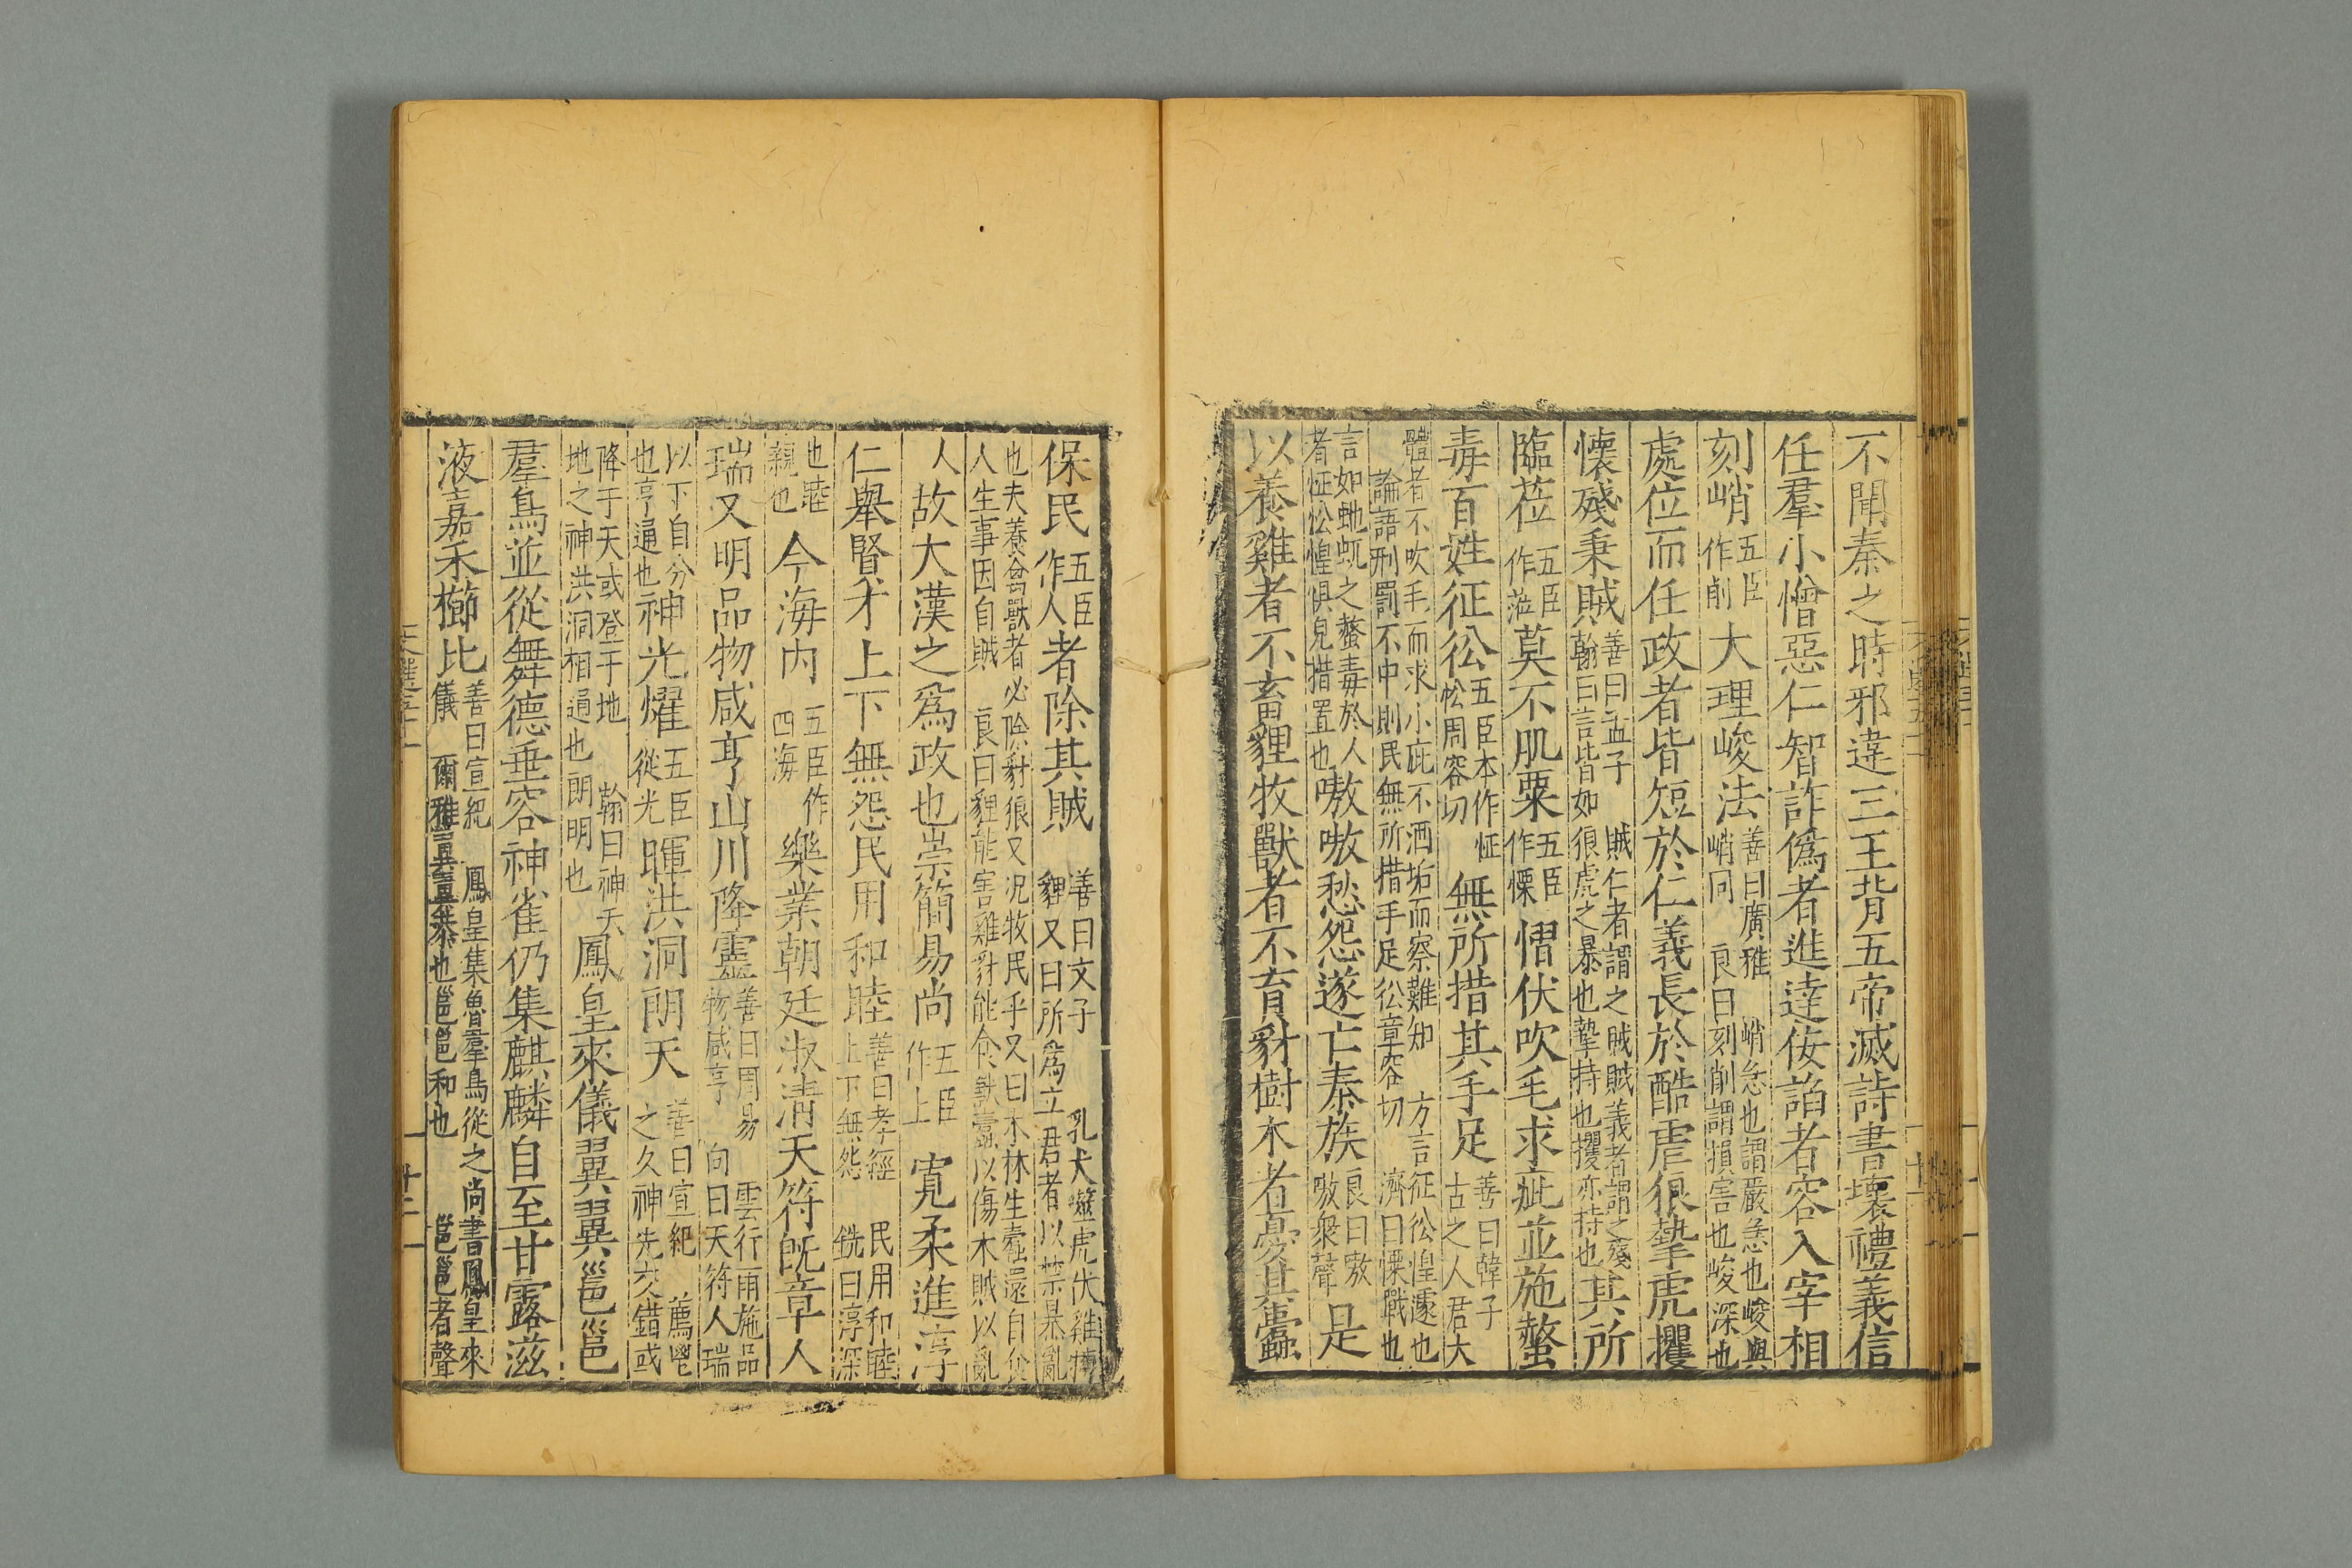 不聞秦之時邪違三王背五帝滅詩書壞禮義信
任羣小憎惡仁智詐偽者進達佞諂者容入宰相
刻峭五臣作削大理峻法善曰廣雅峭急也謂嚴急也峻與峭同良曰刻削謂損害也峻深也
處位而任政者皆短於仁義長於酷虐狼摯虎攫
懷殘秉賊善曰孟子賊仁者謂之賊賊義者謂之殘翰曰言皆如狼虎之暴也摯持也攫亦持也其所
臨莅五臣作蒞莫不肌栗五臣作慄慴伏吹毛求疵並施螫
毒百姓征彸五臣本作怔忪周容切無所措其手足善曰韓子古之人君大
體者不吹毛而求小疵不洒垢而察難知方言征彸惶遽也論語刑罰不中則民無所措手足彸章容切濟曰慄戰也
言如虵虺之螫毒於人者怔忪惶惧皃措置也嗷嗷愁怨遂亡秦族良曰嗷嗷衆聲是
以養雞者不畜貍牧獸者不育豺樹木者憂其蠹
保民五臣作人者除其賊善曰文子乳犬噬虎伏雞搏貍又曰所為立君者以禁暴亂
也夫養禽獸者必除豺狼又况牧民乎又曰木林生蠹還自食人生事因自賊良曰貍能害雞豺能食獸蠹以傷木賊以亂
人故大漢之為政也崇簡易尚五臣作上寬柔進淳
仁舉賢才上下無怨民用和睦善曰孝經民用和睦上下無怨銑曰淳深
也睦親也今海內五臣作四海樂業朝廷淑清天符既章人
瑞又明品物咸亨山川降靈善曰周易雲行雨施品物咸亨向曰天符人瑞
以下自分也亨通也神光燿五臣從光暉洪洞朗天善曰宣紀薦鬯之久神光交錯或
降于天或登于地翰曰神天地之神洪洞相通也朗明也鳳皇來儀翼翼邕邕
羣鳥並從舞德垂容神雀仍集麒麟自至甘露滋
液嘉禾櫛比善曰宣紀鳳皇集魯羣鳥從之尚書鳳皇來儀爾雅翼翼恭也邕邕和也邕邕者聲
文選五十一
十二